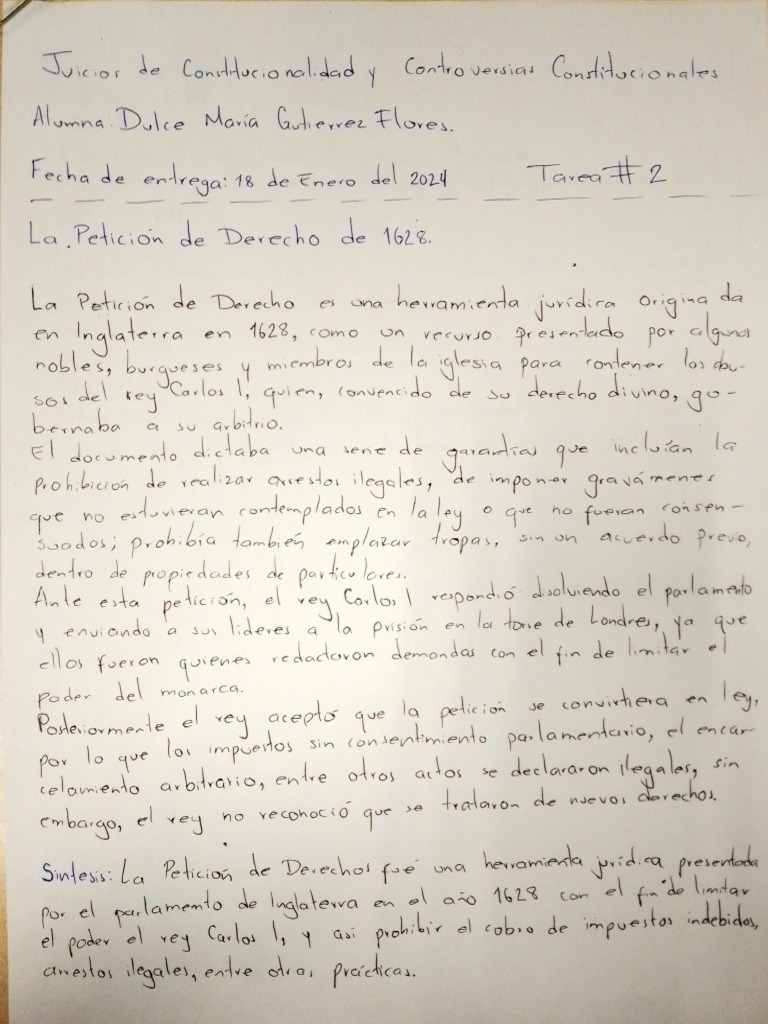 Juicios de Constitucionalidad y Controversias Constitucionales
Alumna: Dulce María Gutierrez Flores.
Fecha de entrega: 18 de Enero del 2024 Tarea # 2
La Petición de Derecho de 1628.
La Petición de Derecho es una herramienta jurídica originada
en Inglaterra en 1628, como un recurso presentado por algunos
nobles, burgueses y miembros de la iglesia para contener los abu-
sos del rey Carlos I, quien, convencido de su derecho divino, go-
bernaba a su arbitrio.
El documento dictaba una serie de garantías que incluían la
prohibición de realizar arrestos ilegales, de imponer gravámenes
que no estuvieran contemplados en la ley o que no fueran consen-
suados; prohibía también emplazar tropas, sin un acuerdo previo,
dentro de propiedades de particulares.
Ante esta petición, el rey Carlos I respondió disolviendo el parlamento
y enviando a sus líderes a la prisión en la torre de Londres, ya que
ellos fueron quienes redactaron demandas con el fin de limitar el
poder del monarca.
Posteriormente el rey aceptó que la petición se convirtiera en ley,
por lo que los impuestos sin consentimiento parlamentario, el encar-
celamiento arbitrario, entre otros actos se declararon ilegales, sin
embargo, el rey no reconoció que se trataron de nuevos derechos.
Síntesis: La Petición de Derechos fué una herramienta jurídica presentada
por el parlamento de Inglaterra en el año 1628 con el fin de limitar
el poder el rey Carlos I, y asi prohibir el cobro de impuestos indebidos,
arrestos ilegales, entre otras prácticas.